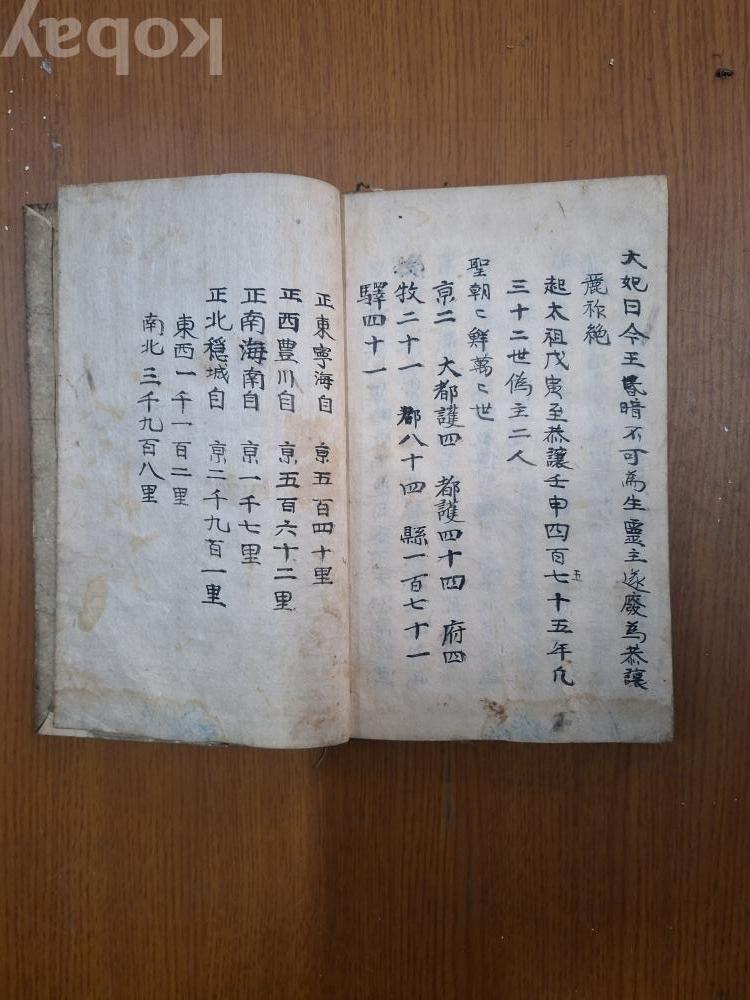 kobay
大妃曰今王昏暗不可為生靈主遂廢為恭讓
麗祚絶
起太祖戊寅至恭讓壬申四百七十五年凡
五
三十二世偽主二人
聖朝〻鮮萬〻世
京二 大都護四 都護四十四 府四
牧二十一 郡八十四 縣一百七十一
驛四十一
正東寧海自 京五百四十里
正西豊川自 京五百六十二里
正南海南自 京一千七里
正北穩城自 京二千九百一里
東西一千一百二里
南北三千九百八里